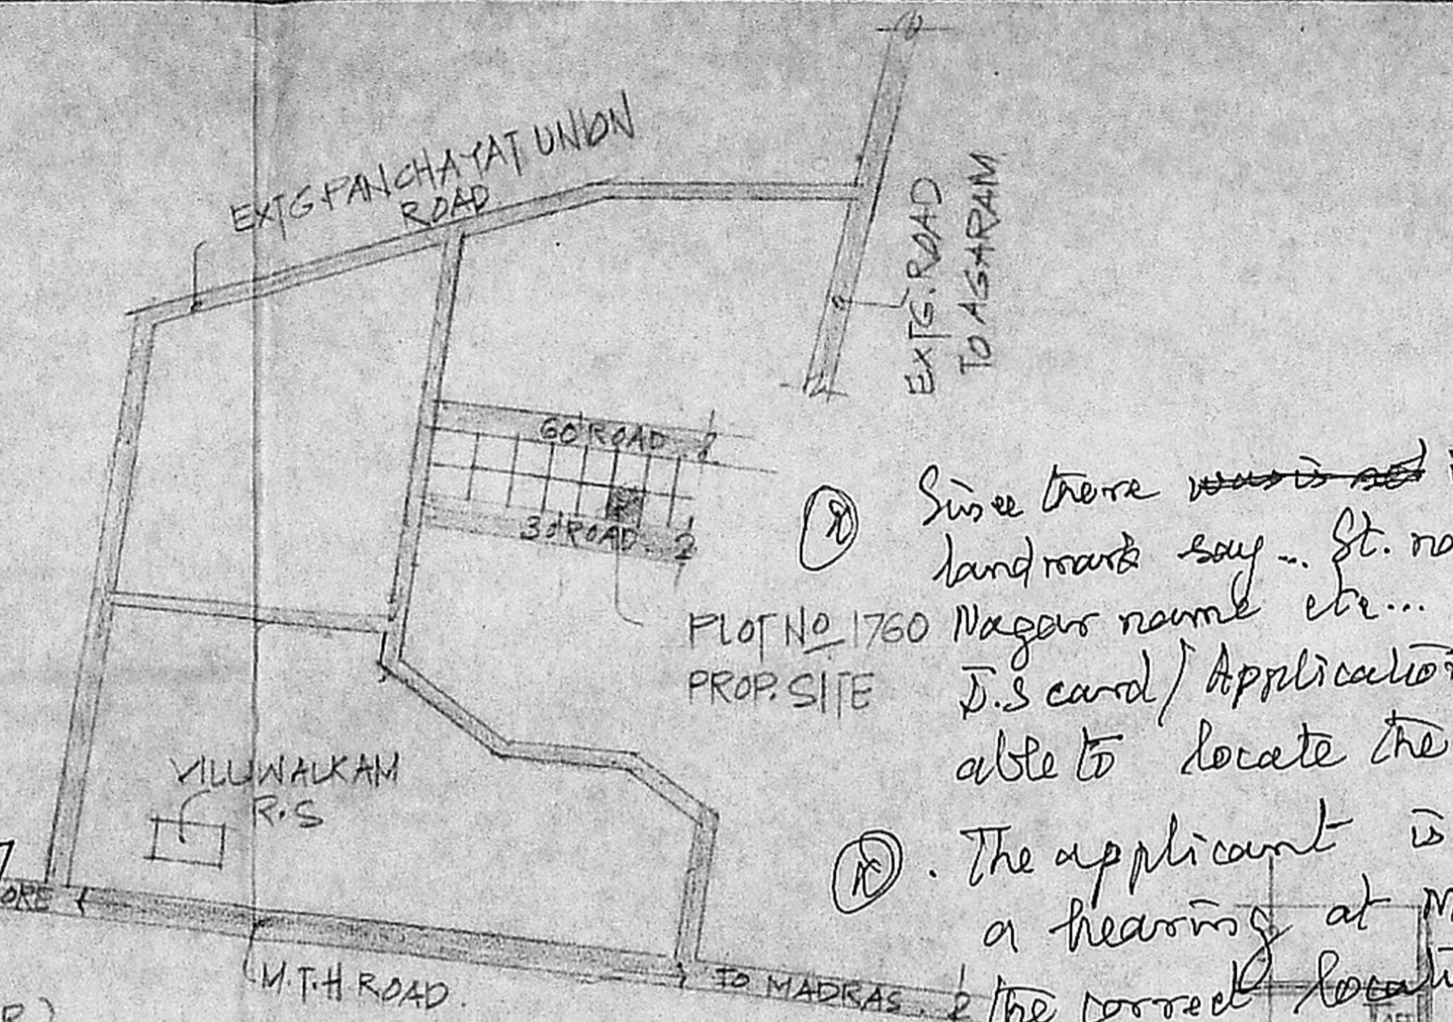 EXTG.PANCHAYAT UNION
ROAD
EXTG. ROAD
TO AGARAM
60' ROAD
30' ROAD
PLOT No 1760
PROP. SITE
VILLIWALKAM
R.S
ORE
M.T.H ROAD.
TO MADRAS.
Since there
landmark say... St. no
Nagar name etc...
I.S card / Applicatio
able to locate the
The applicant is
a hearing at M
the correct locati
R)